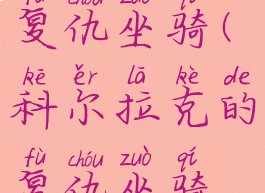 fù chóu zuò qí
复仇坐骑(
kē ěr lā kè de
科尔拉克的
fù chóu zuò qí
复仇坐骑